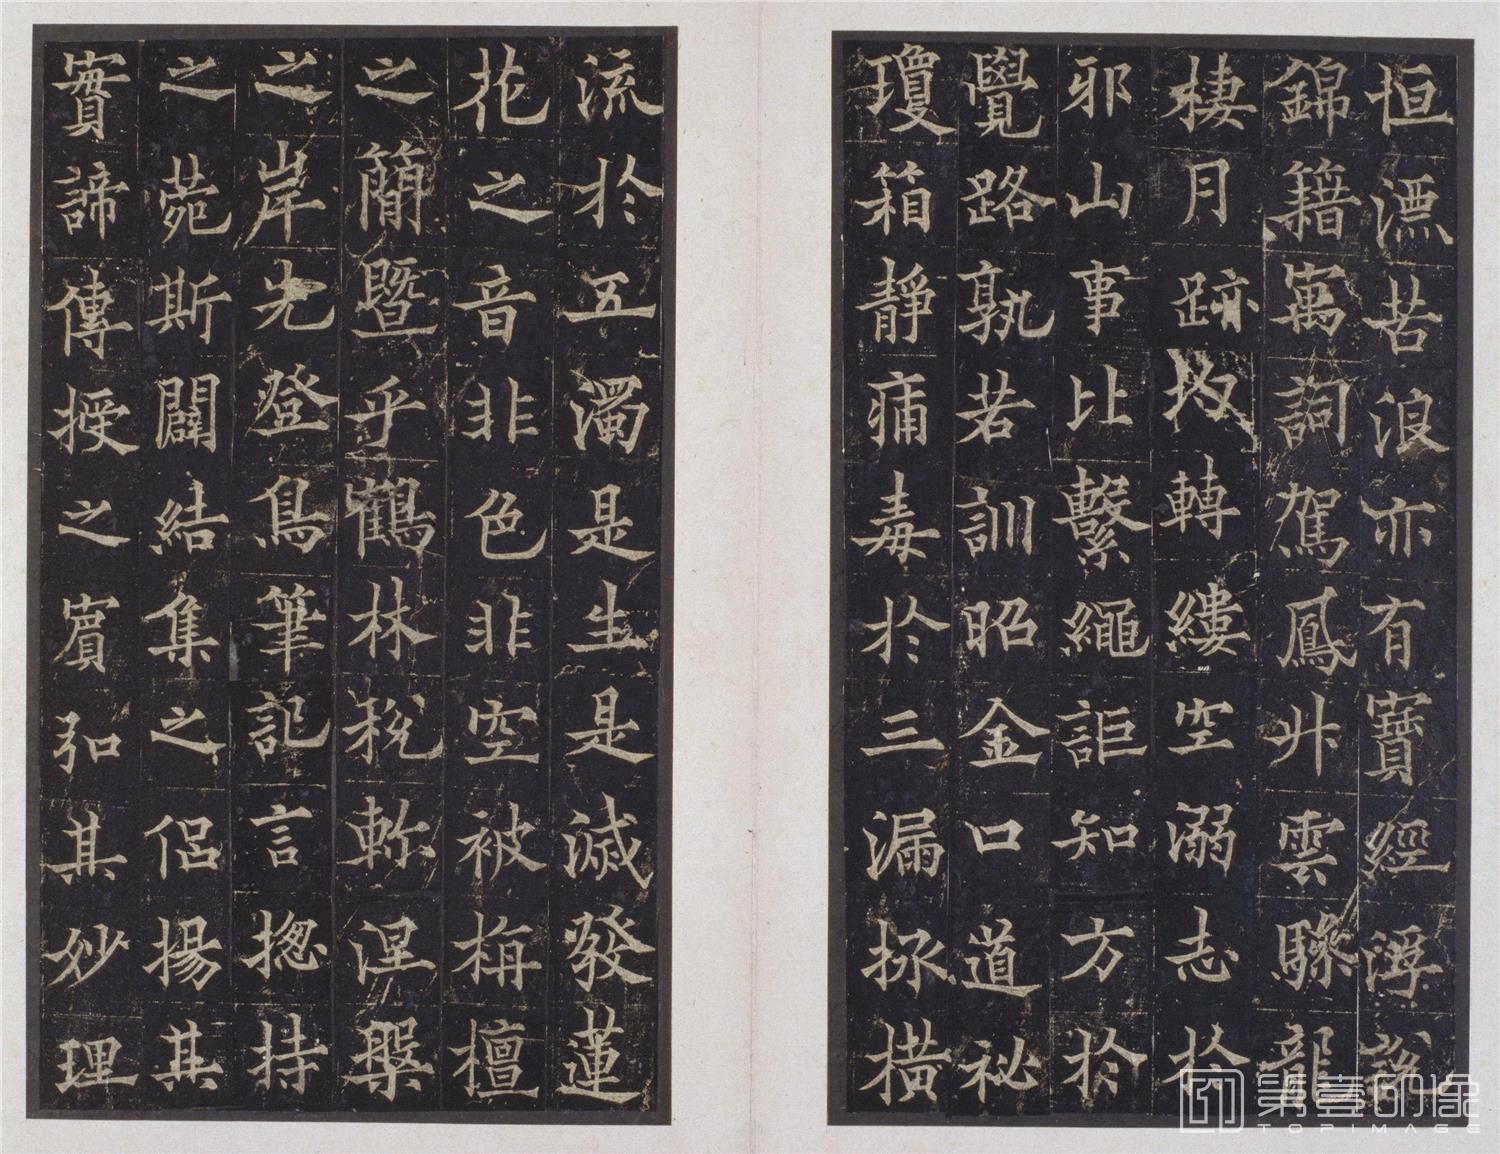 恒漂苦浪亦有寶經浮説
錦籍寓詞駕鳳升雲驂龍
棲月跡均轉縷空溺志於
邪山事比繫繩詎知方於
覺路孰若訓昭金口道祕
瓊箱靜痛毒於三漏拯橫
流於五濁是生是滅發蓮
花之音非色非空被栴檀
之簡暨乎鶴林税軫涅槃
之岸先登鳥筆記言揔持
之菀斯闢結集之侶揚其
實諦傳授之賓弘其妙理
第壹印像
TOPIMAGE